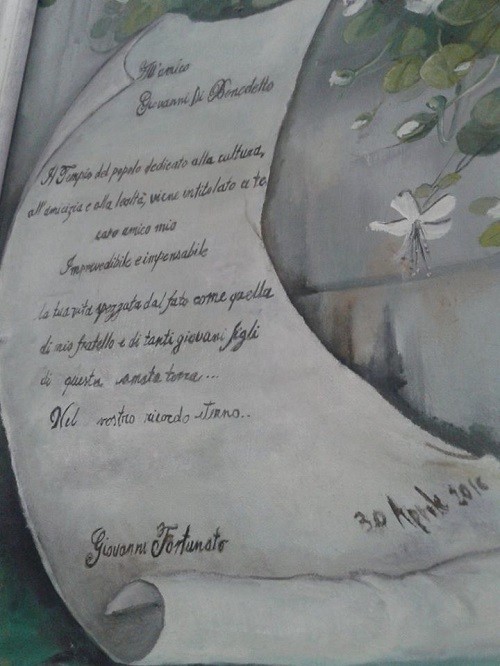 All'amico
Giovanni Di Benedetto
Il Tempio del popolo dedicato alla cultura,
all'amicizia e alla lealtà, viene intitolato a te
caro amico mio
Imprevedibile e impensabile
la tua vita spezzata dal fato come quella
di mio fratello e di tanti giovani figli
di questa amata terra...
Nel nostro ricordo eterno..
30 Aprile 2016
Giovanni Fortunato